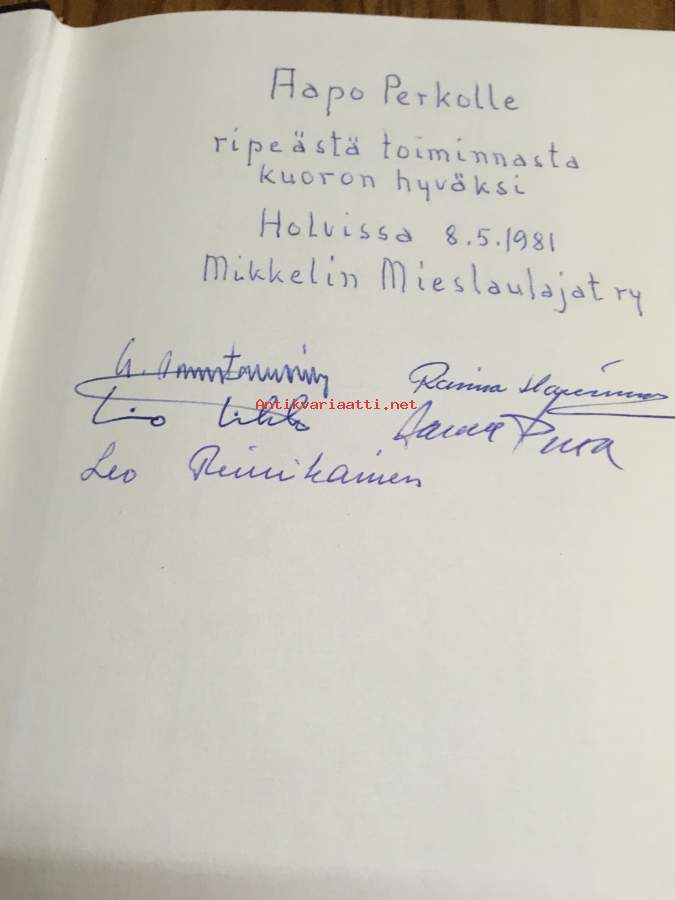 Aapo Perkolle
ripeästä toiminnasta
kuoron hyväksi
Holvissa 8.5.1981
Mikkelin Mieslaulajat ry
Antikvariaatti.net
Leo Reinikainen